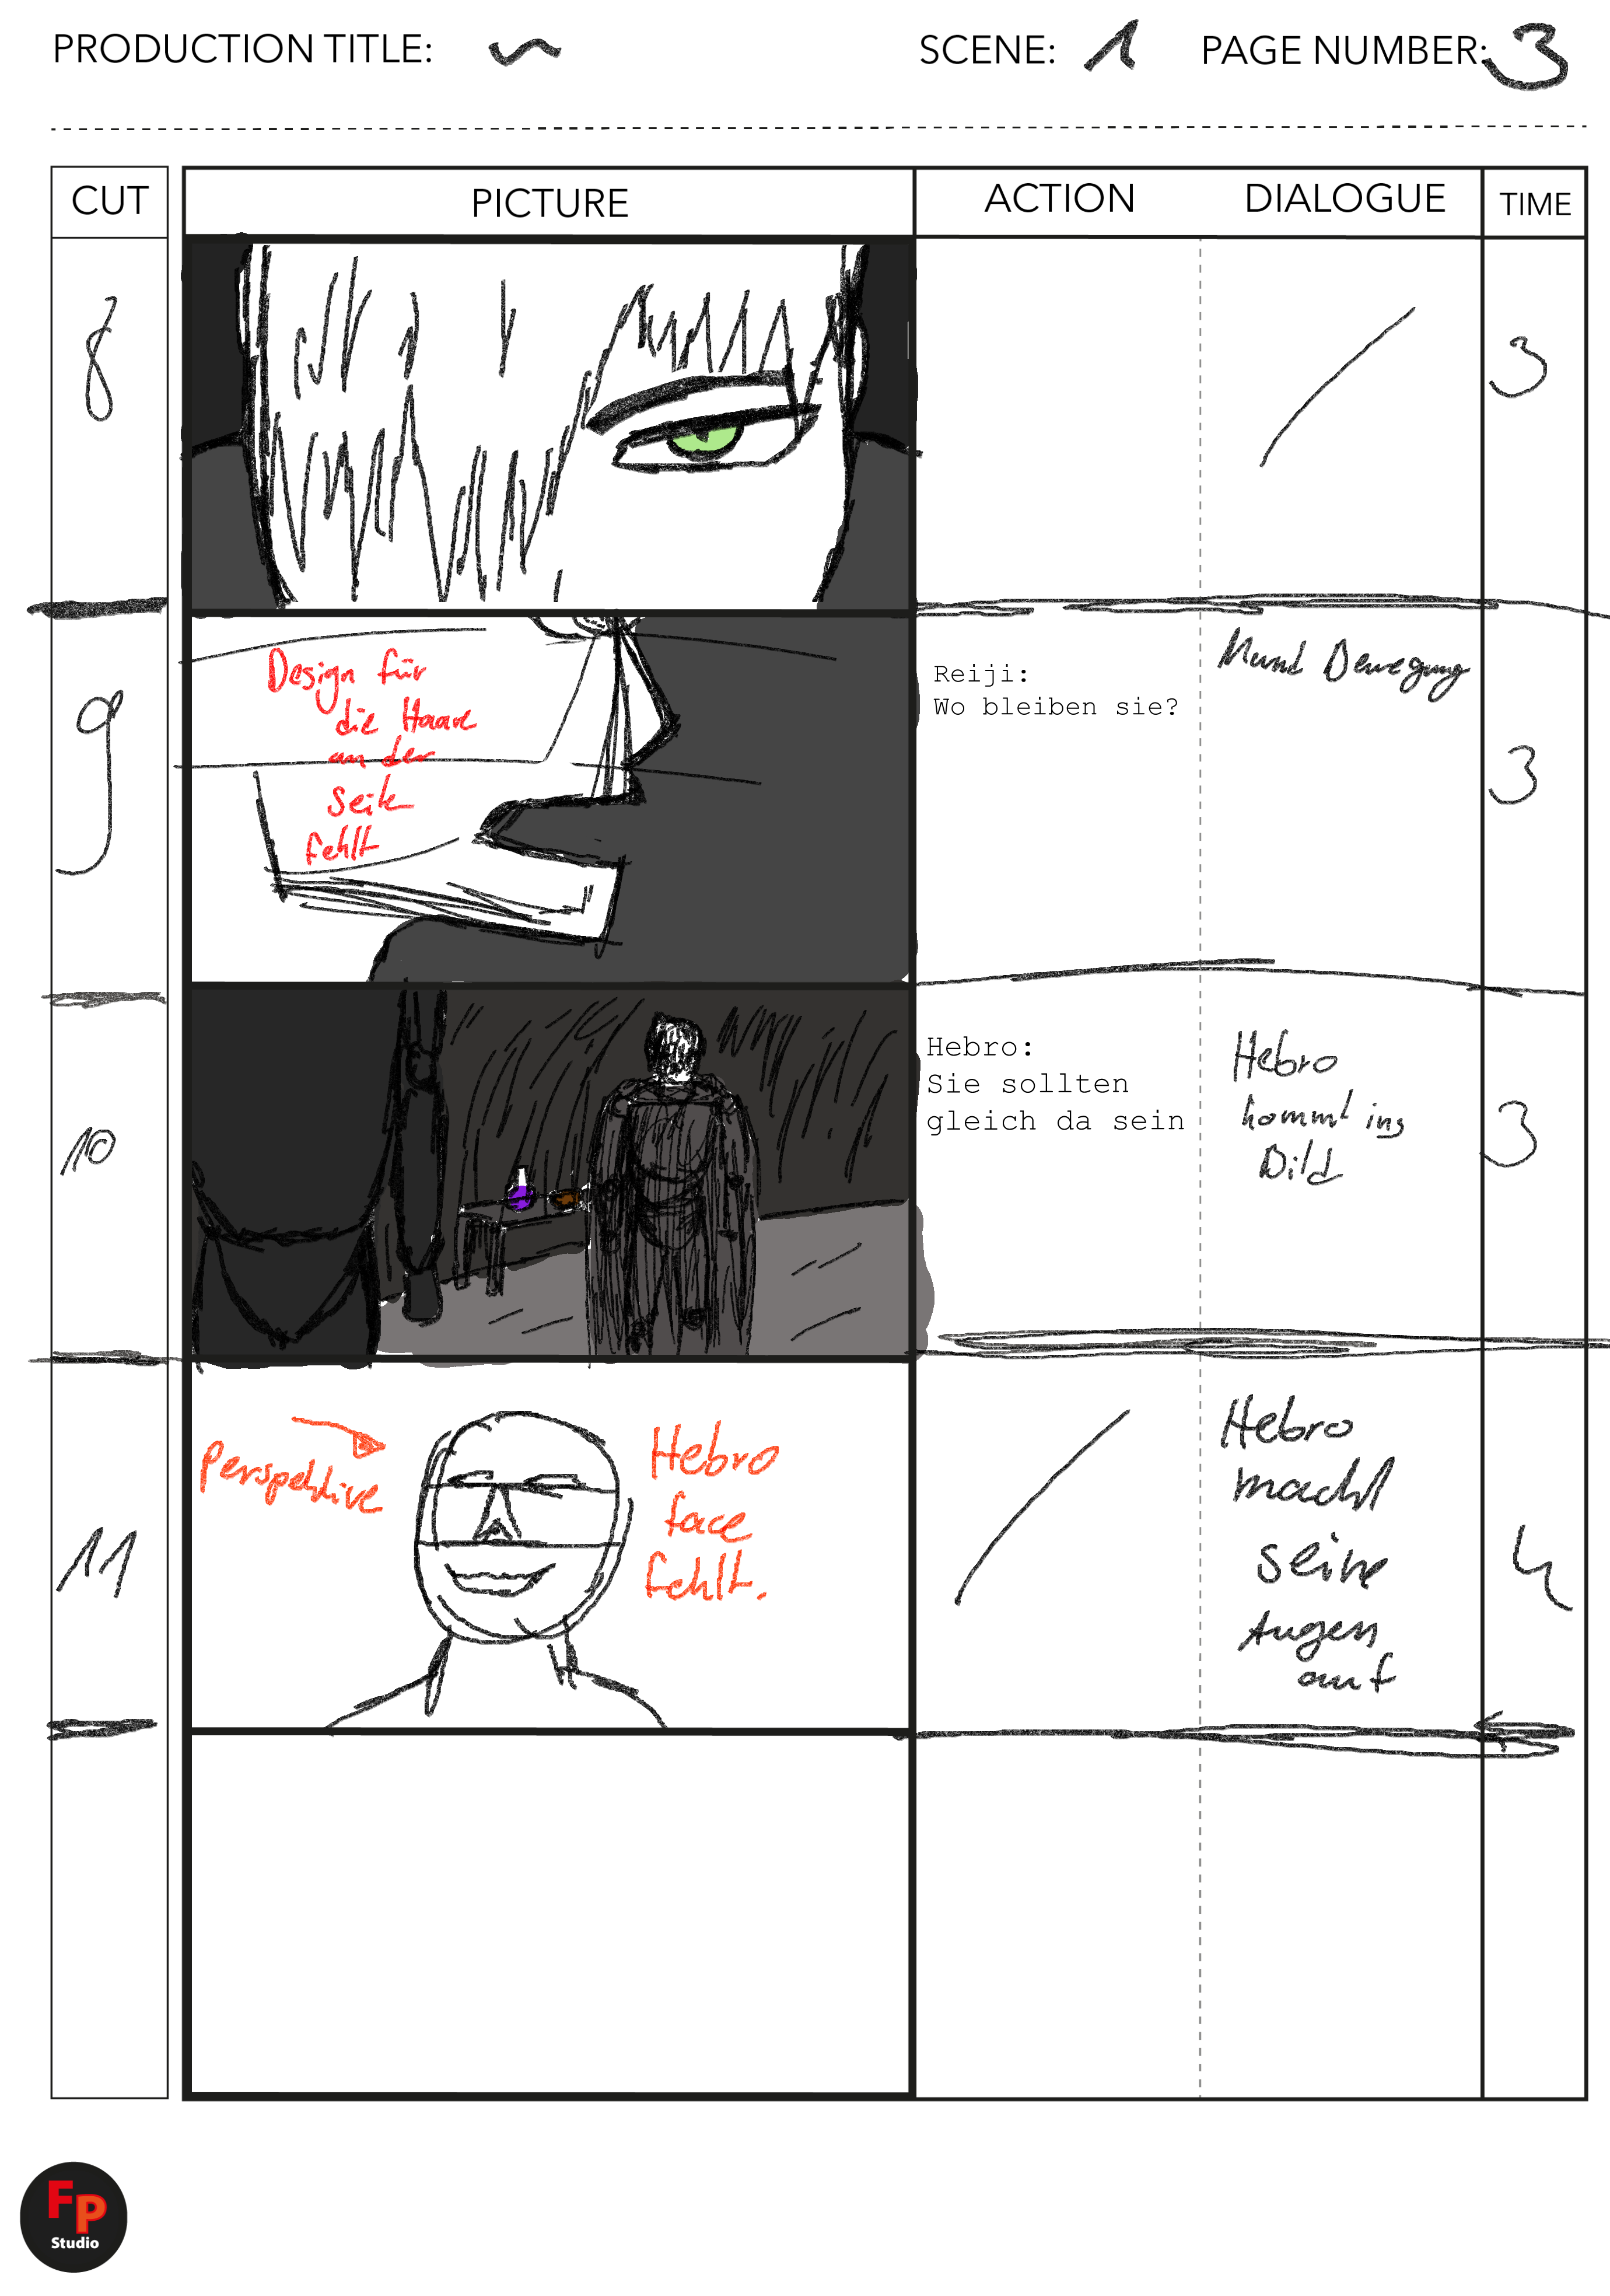 PRODUCTION TITLE: ~
SCENE: 1
PAGE NUMBER: 3
CUT
PICTURE
ACTION
DIALOGUE
TIME
8
3
9
Design für
die Haare
an der
Seite
fehlt
Reiji:
Wo bleiben sie?
Mund Bewegung
3
10
Hebro:
Sie sollten
gleich da sein
Hebro
kommt ins
Bild
3
11
Perspektive
Hebro
face
fehlt.
Hebro
macht
seine
Augen
auf
4
FP
Studio